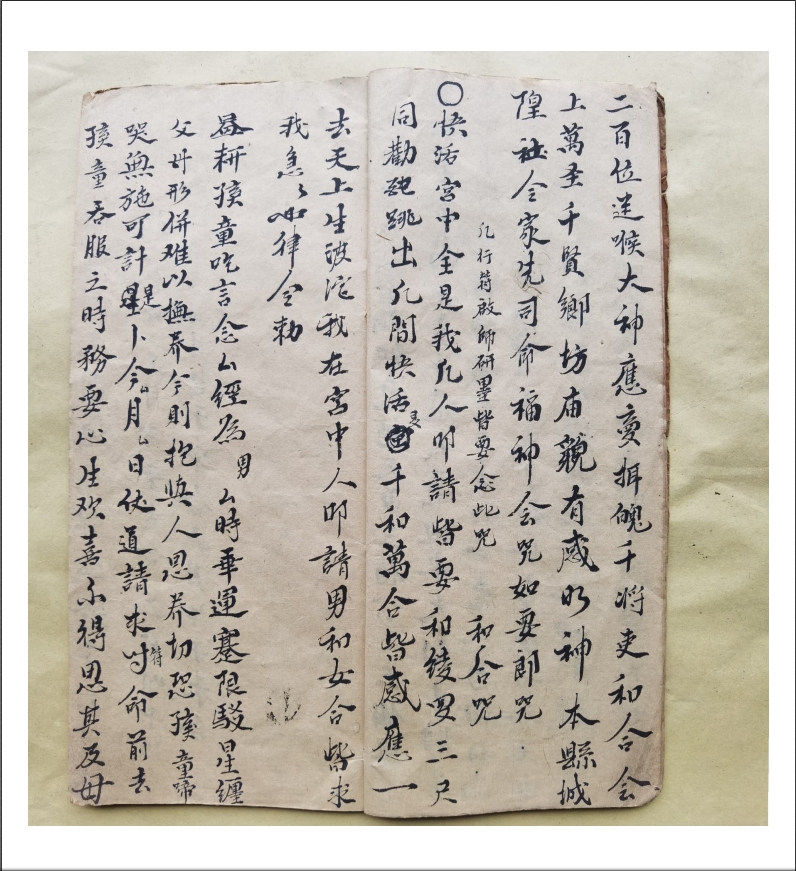 二百位送喉大神應變押魄千將吏和合会
上萬圣千賢鄉坊庙貌有感明神本縣城
隍社令家先司命福神会咒如要郎咒
凡行符啟師研墨皆要念此咒
和合咒
〇快活宮中全是我凡人叩請皆要和綾罗三尺
同勸跳出凡間快活是千和萬合皆感應一
去天上生波沱我在宮中人叩請男和女合皆求
我急々如律令勅
孩童吃言念厶經為男厶時乖運蹇限駁星纏
父母形併难以撫养今則抱與人恩养切恐孩童啼
哭無施可計是卜今厶月厶日仗道請求吋符命前去
孩童吞服之時務要心生欢喜不得思其及母